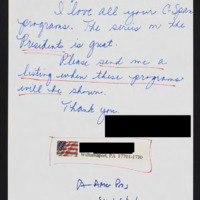 I love all your C-Span
programs. The series on the
Presidents is great.
Please send me a
listing when these programs
will be shown.
Thank you.
PA 17701-1730